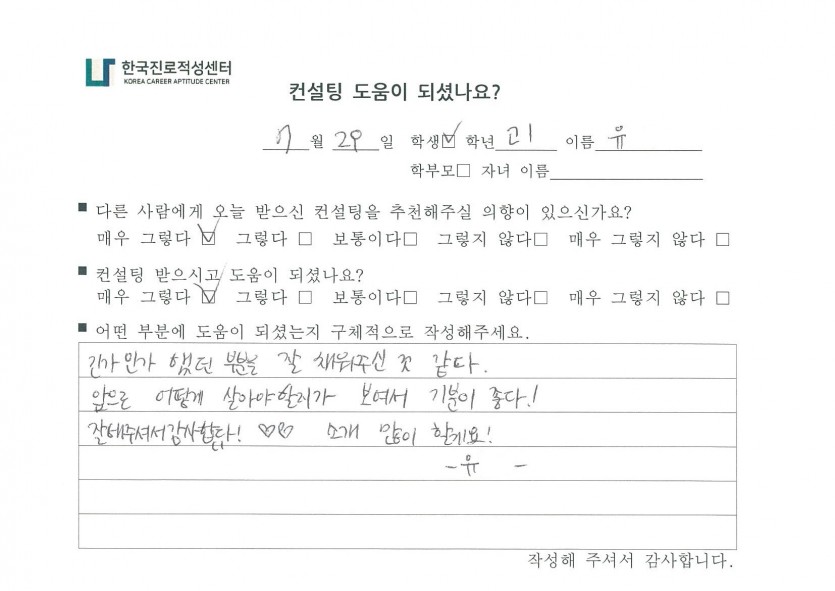 한국진로적성센터
KOREA CAREER APTITUDE CENTER
컨설팅 도움이 되셨나요?
7월 29일 학생☑ 학년 고1 이름 유
학부모□ 자녀 이름
■ 다른 사람에게 오늘 받으신 컨설팅을 추천해주실 의향이 있으신가요?
매우 그렇다 ☑ 그렇다 □ 보통이다□ 그렇지 않다□ 매우 그렇지 않다 □
■ 컨설팅 받으시고 도움이 되셨나요?
매우 그렇다 ☑ 그렇다 □ 보통이다□ 그렇지 않다□ 매우 그렇지 않다 □
■ 어떤 부분에 도움이 되셨는지 구체적으로 작성해주세요.
긴가 민가 했던 부분을 잘 채워주신 것 같다.
앞으로 어떻게 살아야할지가 보여서 기분이 좋다!
잘해주셔서감사합니다! ♡♡ 소개 많이 할게요!
-유 -
작성해 주셔서 감사합니다.